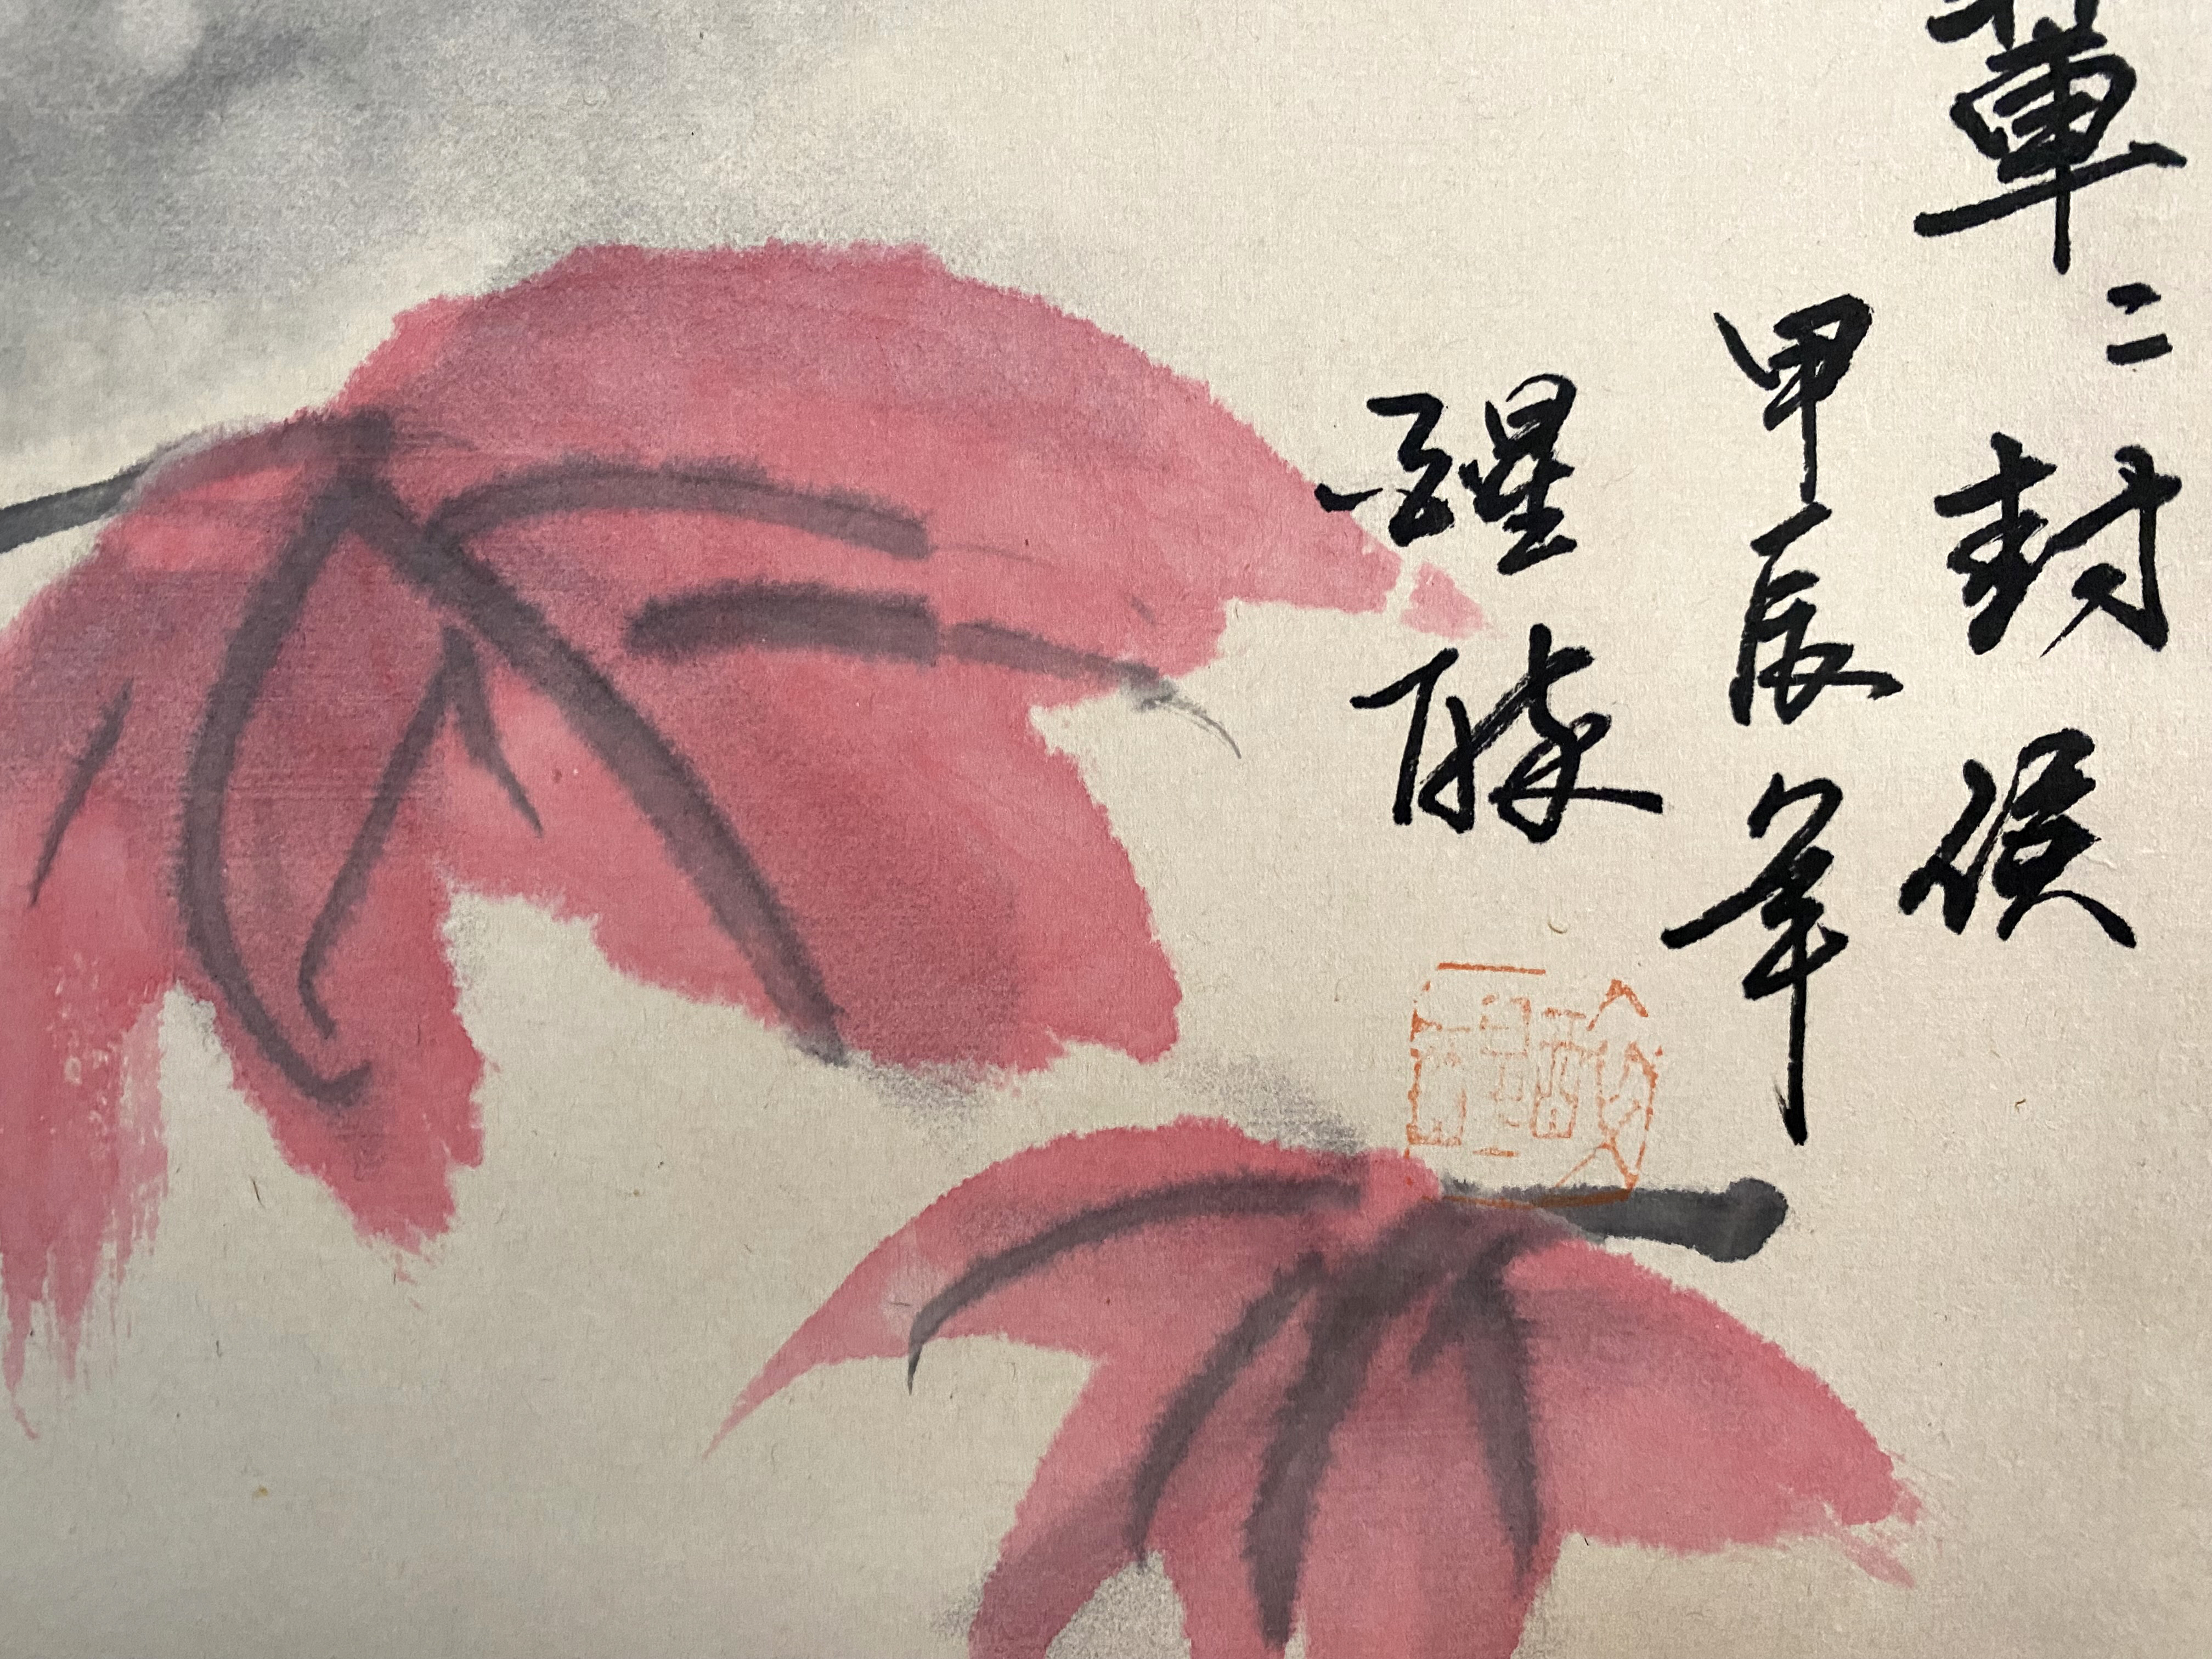 輩〻封侯
甲辰年
醒